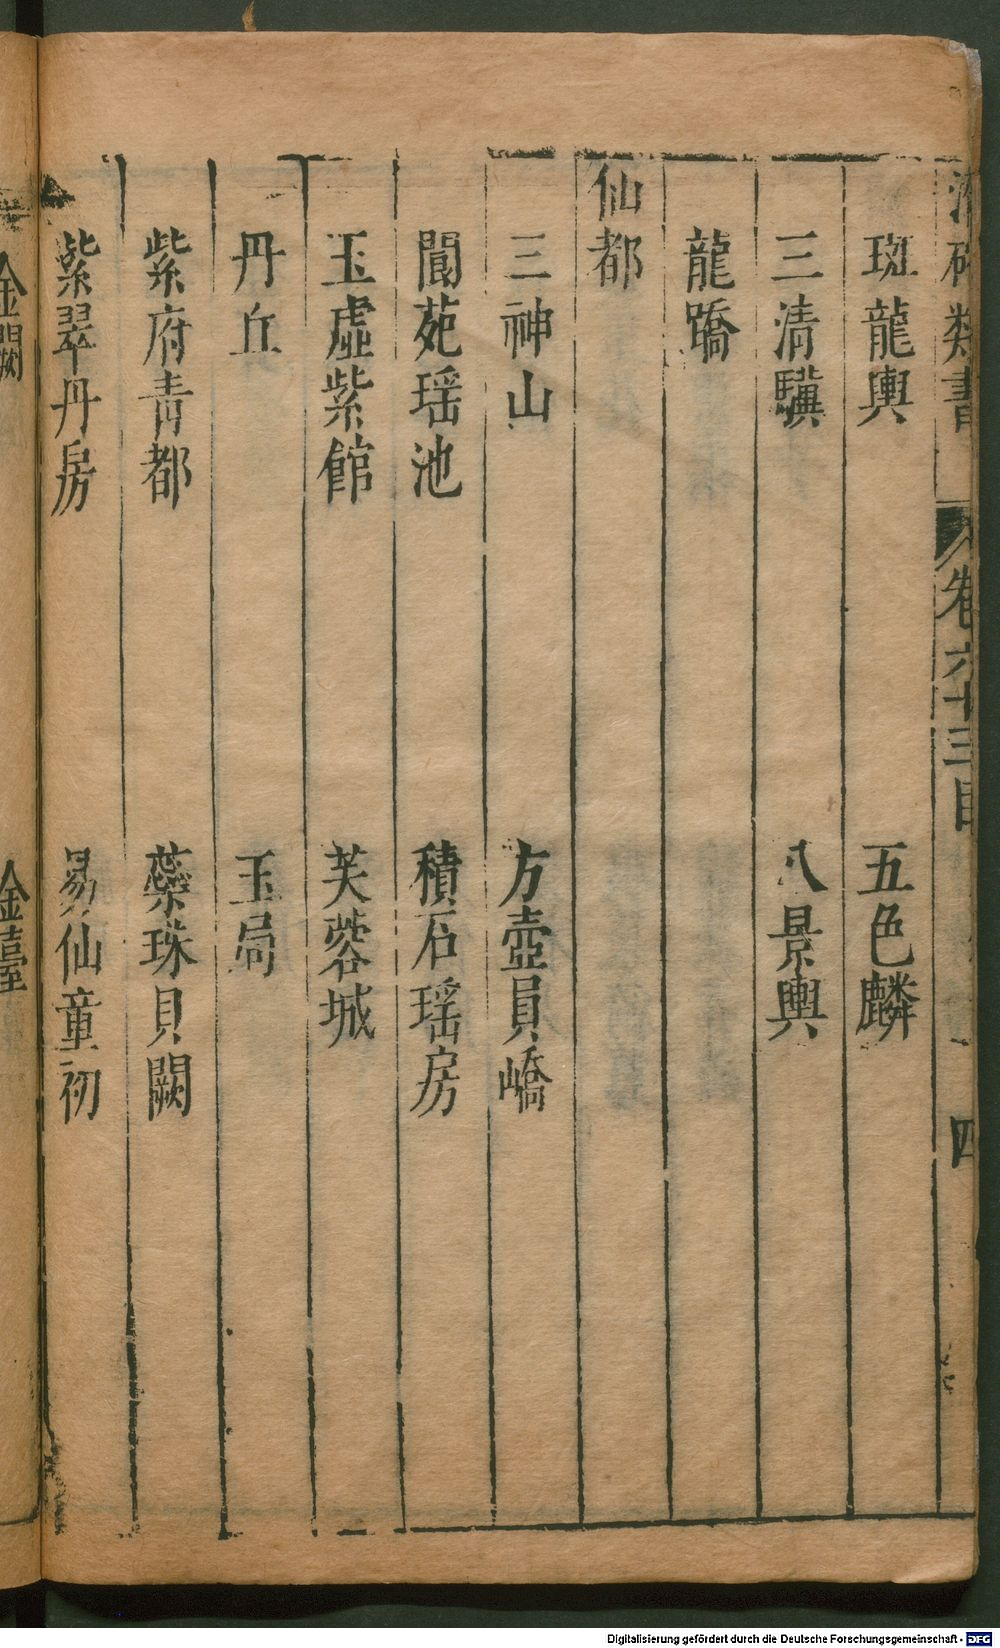 類書 卷六十三目 四
斑龍輿 五色麟
三清驥 八景輿
龍蹻
仙都
三神山 方壺員嶠
閬苑瑤池 積石瑤房
玉虛紫館 芙蓉城
丹丘 玉局
紫府青都 蘂珠貝闕
紫翠丹房 易仙童初
金闕 金臺
Digitalisierung gefördert durch die Deutsche Forschungsgemeinschaft - DFG